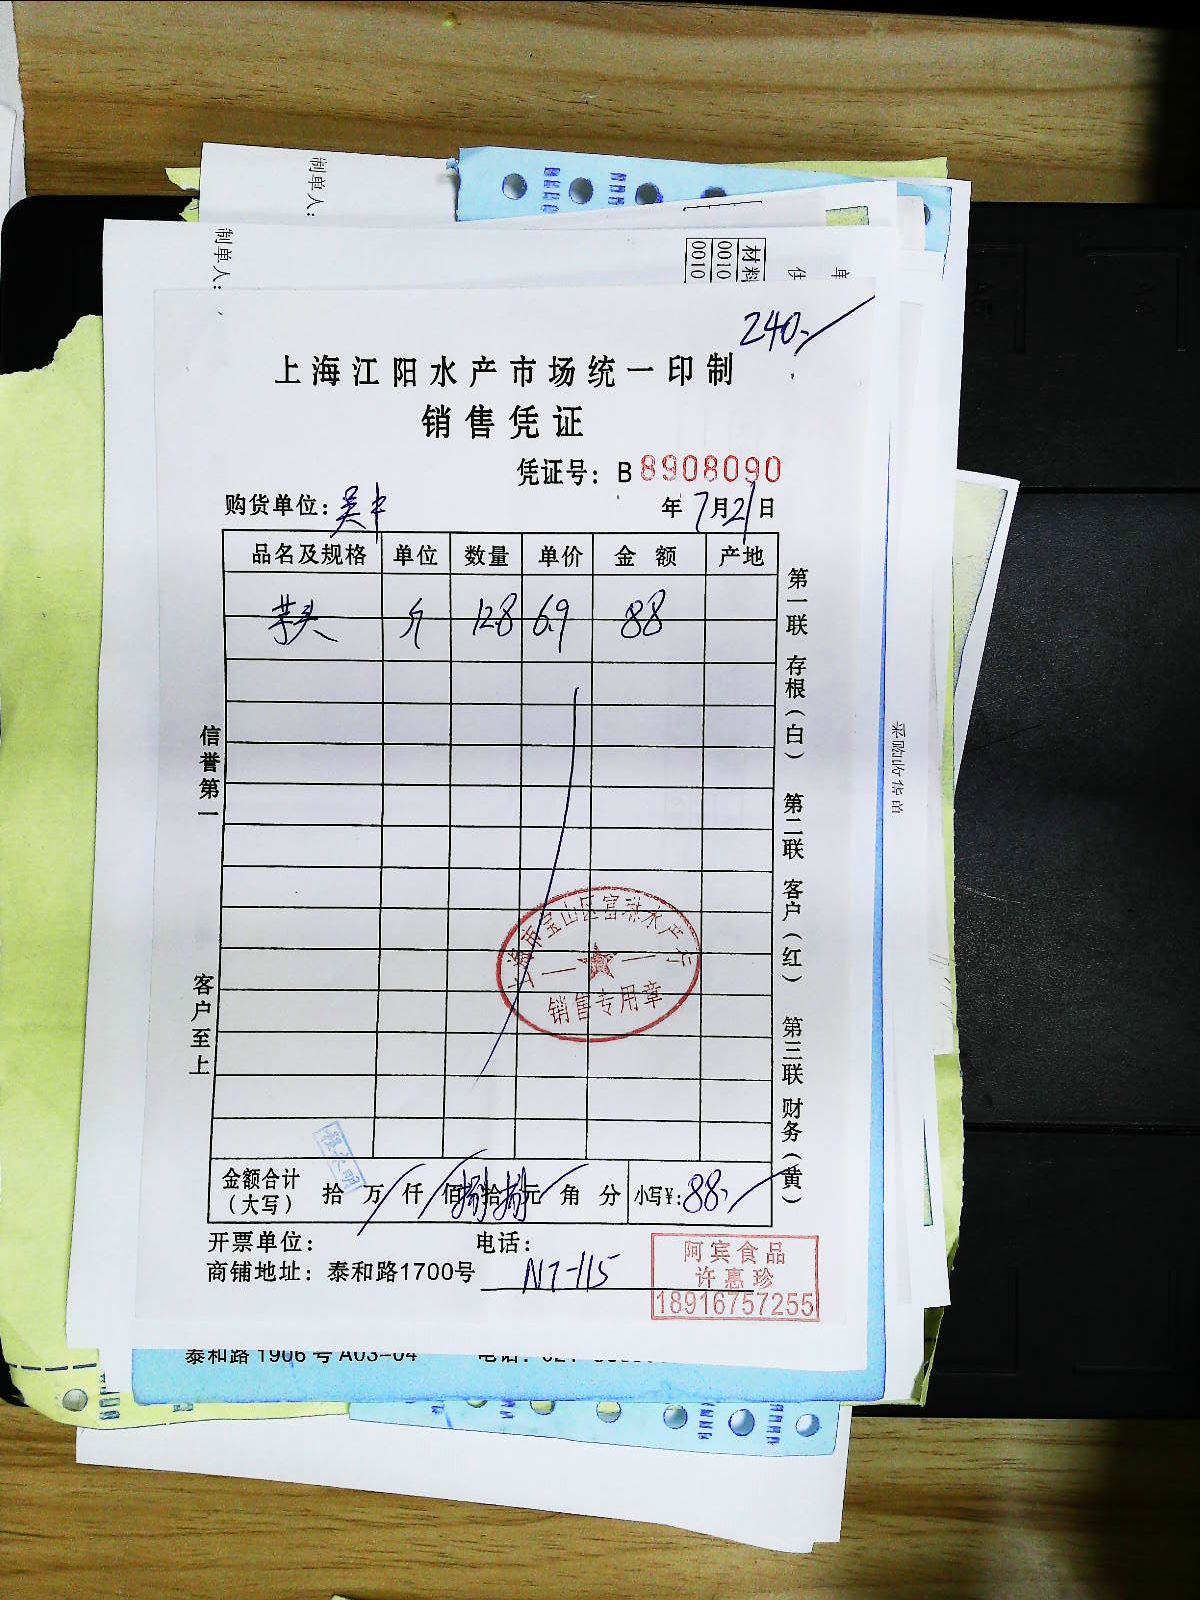 制单人:
制单人:
材料
0010
0010
供
单
240,
上海江阳水产市场统一印制
销售凭证
凭证号: B 8908090
购货单位: 吴中 年 7月21日
品名及规格 单位 数量 单价 金 额 产地
芋头 斤 12.8 6.9 88
第一联 存根(白) 第二联 客户(红) 第三联 财务(黄)
信誉第一
客户至上
采购收货单
上海市宝山区富洪水产行
销售专用章
金额合计
(大写) 拾 万 仟 佰 捌拾 捌元 角 分 小写¥: 88,
开票单位: 电话:
商铺地址: 泰和路1700号 N7-115
阿宾食品
许惠珍
18916757255
泰和路1906号A03-04 电话: 021-